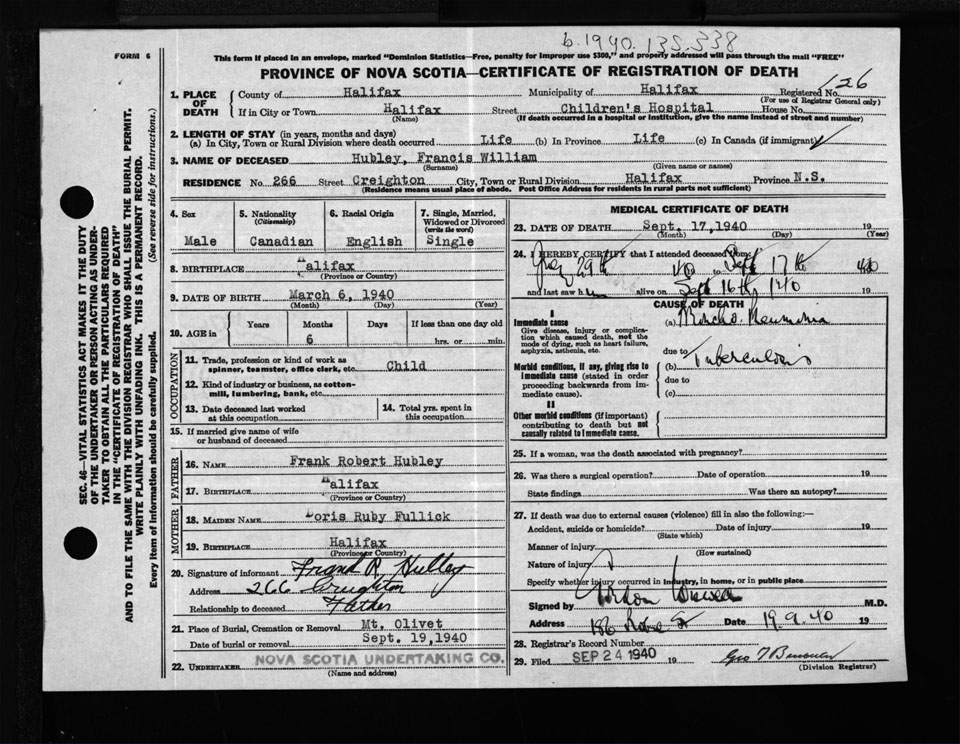 b. 1940. 135.338
FORM 6
This form if placed in an envelope, marked "Dominion Statistics—Free, penalty for improper use $300," and properly addressed will pass through the mail "FREE"
PROVINCE OF NOVA SCOTIA—CERTIFICATE OF REGISTRATION OF DEATH
126
1. PLACE OF DEATH
County of Halifax Municipality of Halifax Registered No.
(For use of Registrar General only)
If in City or Town Halifax Street Children's Hospital House No.
(Name) (If death occurred in a hospital or institution, give the name instead of street and number)
2. LENGTH OF STAY (in years, months and days)
(a) In City, Town or Rural Division where death occurred Life (b) In Province Life (c) In Canada (if immigrant)
3. NAME OF DECEASED Hubley, Francis William
(Surname) (Given name or names)
RESIDENCE No. 266 Street Creighton City, Town or Rural Division Halifax Province N.S.
(Residence means usual place of abode. Post Office Address for residents in rural parts not sufficient)
4. Sex
Male
5. Nationality
(Citizenship)
Canadian
6. Racial Origin
English
7. Single, Married,
Widowed or Divorced
(write the word)
Single
8. BIRTHPLACE Halifax
(Province or Country)
9. DATE OF BIRTH March 6, 1940
(Month) (Day) (Year)
10. AGE in
Years Months Days If less than one day old
6 hrs. or min.
OCCUPATION
11. Trade, profession or kind of work as
spinner, teamster, office clerk, etc. Child
12. Kind of industry or business, as cotton-
mill, lumbering, bank, etc.
13. Date deceased last worked
at this occupation
14. Total yrs. spent in
this occupation
15. If married give name of wife
or husband of deceased
FATHER
16. NAME Frank Robert Hubley
17. BIRTHPLACE Halifax
(Province or Country)
MOTHER
18. MAIDEN NAME Doris Ruby Fullick
19. BIRTHPLACE Halifax
(Province or Country)
20. Signature of informant Frank R Hubley
Address 266 Creighton
Relationship to deceased Father
21. Place of Burial, Cremation or Removal Mt. Olivet
Date of burial or removal Sept. 19, 1940
22. UNDERTAKER NOVA SCOTIA UNDERTAKING CO.
(Name and address)
MEDICAL CERTIFICATE OF DEATH
23. DATE OF DEATH Sept. 17, 1940 19
(Month) (Day) (Year)
24. I HEREBY CERTIFY that I attended deceased from:
29th 40 to Sept 17th 40
and last saw him alive on Sept 16th, 1940 19
CAUSE OF DEATH
I
Immediate cause
Give disease, injury or complica-
tion which caused death, not the
mode of dying, such as heart failure,
asphyxia, asthenia, etc.
(a) Broncho. Pneumonia
due to
Morbid conditions, if any, giving rise to
immediate cause (stated in order
proceeding backwards from im-
mediate cause).
(b) Tuberculosis
due to
(c)
II
Other morbid conditions (if important)
contributing to death but not
causally related to immediate cause.
25. If a woman, was the death associated with pregnancy?
26. Was there a surgical operation? Date of operation 19
State findings Was there an autopsy?
27. If death was due to external causes (violence) fill in also the following:—
Accident, suicide or homicide? Date of injury 19
(State which)
Manner of injury
(How sustained)
Nature of injury
Specify whether injury occurred in industry, in home, or in public place
Signed by M.D.
Address Date 19.9.40 19
28. Registrar's Record Number
29. Filed SEP 24 1940 19
(Division Registrar)
SEC. 46—VITAL STATISTICS ACT MAKES IT THE DUTY
OF THE UNDERTAKER OR PERSON ACTING AS UNDER-
TAKER TO OBTAIN ALL THE PARTICULARS REQUIRED
IN THE "CERTIFICATE OF REGISTRATION OF DEATH"
AND TO FILE THE SAME WITH THE DIVISION REGISTRAR WHO SHALL ISSUE THE BURIAL PERMIT.
WRITE PLAINLY WITH UNFADING INK. THIS IS A PERMANENT RECORD.
Every item of information should be carefully supplied. (See reverse side for instructions.)